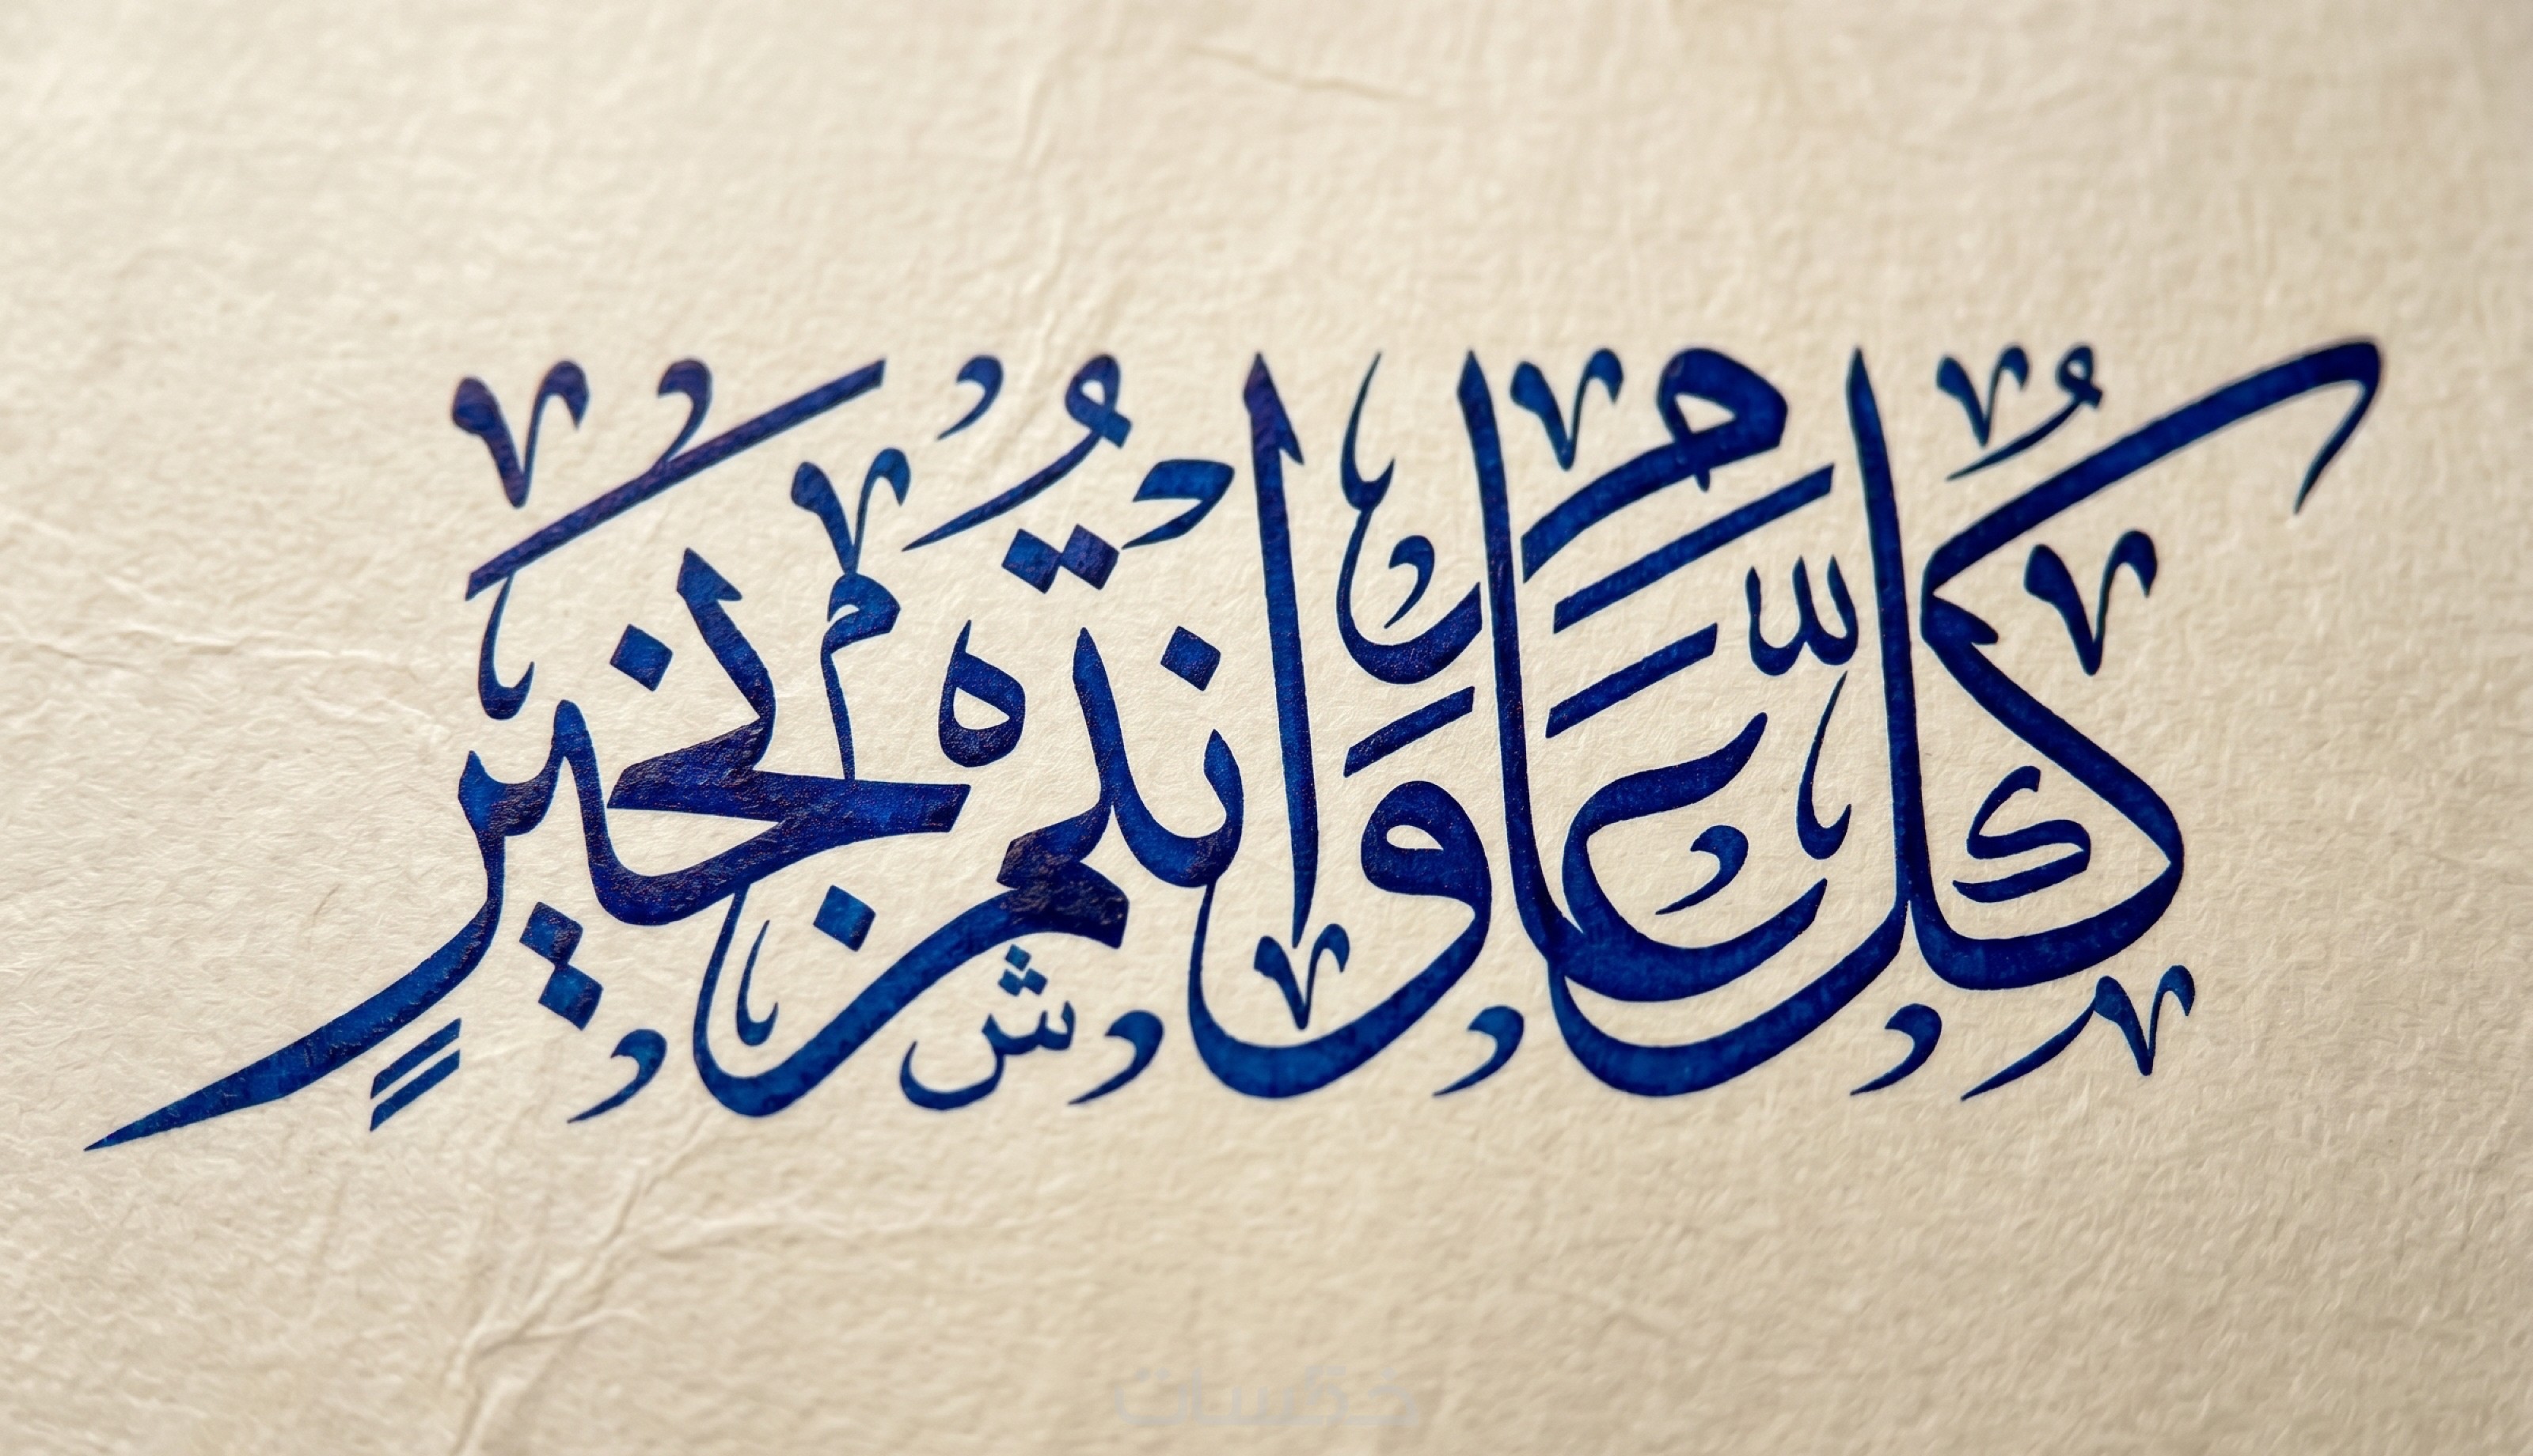 كُلُّ عَامٍ وَأنتُم بخيرٍ
خمسات